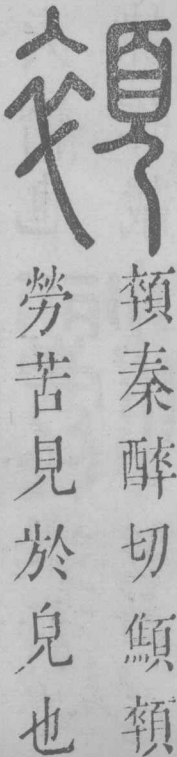 顇
顇秦醉切顦顇
勞苦見於皃也